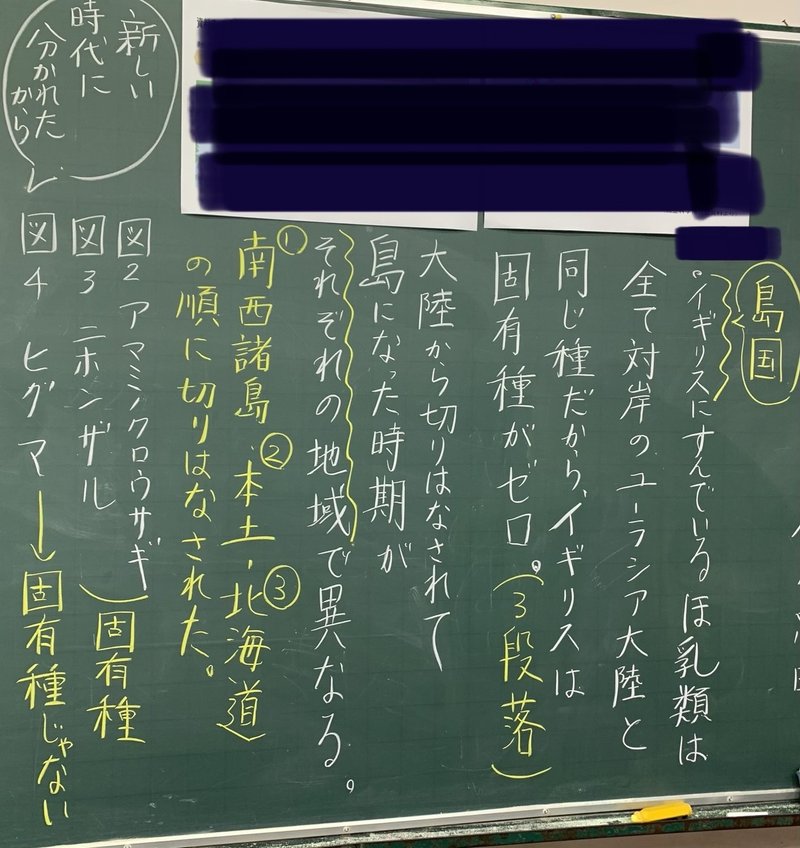 島国
・イギリスにすんでいるほ乳類は
全て対岸のユーラシア大陸と
同じ種だから、イギリスは
固有種がゼロ。(3段落)
大陸から切りはなされて
島になった時期が
それぞれの地域で異なる。
①南西諸島、②本土・③北海道
の順に切りはなされた。
図2 アマミノクロウサギ
図3 ニホンザル
固有種
図4 ヒグマ→固有種じゃない
新しい
時代に
分かれた
から